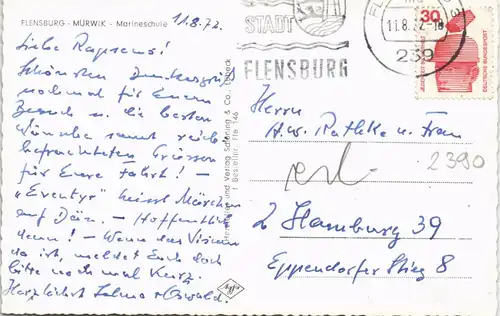 FLENSBURG - MÜRWIK - Marineschule
11.8.72.
Liebe Rapsens!
Schönsten Dankesgruß
nochmal für Euren
Besuch u. die besten
Wünsche samt reich
befrachteten Grüssen
für Eure Fahrt! -
"Eventyr" heisst Märchen
auf Dän. - Hoffentlich
denn! - Wenn das Visum
da ist, meldet Euch doch
bitte nochmal kurz.
Herzlichst Selma + Oswald.
Verlag Schöning & Co., Lübeck
Bestellnr. Fle 146
STADT
FLENSBURG
FLENSBURG
11.8.72-18
239
30
DEUTSCHE BUNDESPOST
Herrn
H.W. Rathke u. Frau
erl
2390
2 Hamburg 39
Eppendorfer Stieg 8